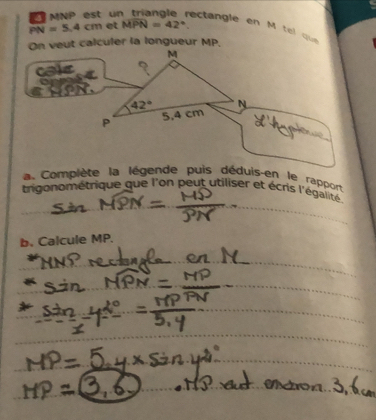 4 MNP est un triangle rectangle en M tel que
PN = 5,4 cm et MPN = 42°.
On veut calculer la longueur MP.
M
?
côté
opposé
à MPN.
42°
N
P
5,4 cm
L'hypoténuse
a. Complète la légende puis déduis-en le rapport
trigonométrique que l'on peut utiliser et écris l'égalité.
sin MPN = MP/PN.
b. Calcule MP.
* MNP rectangle en M
* sin MPN = MP/PN
* sin 42°/1 = MP/5,4
MP = 5,4 x sin 42°
MP = 3,6. MP vaut environ 3,6 cm